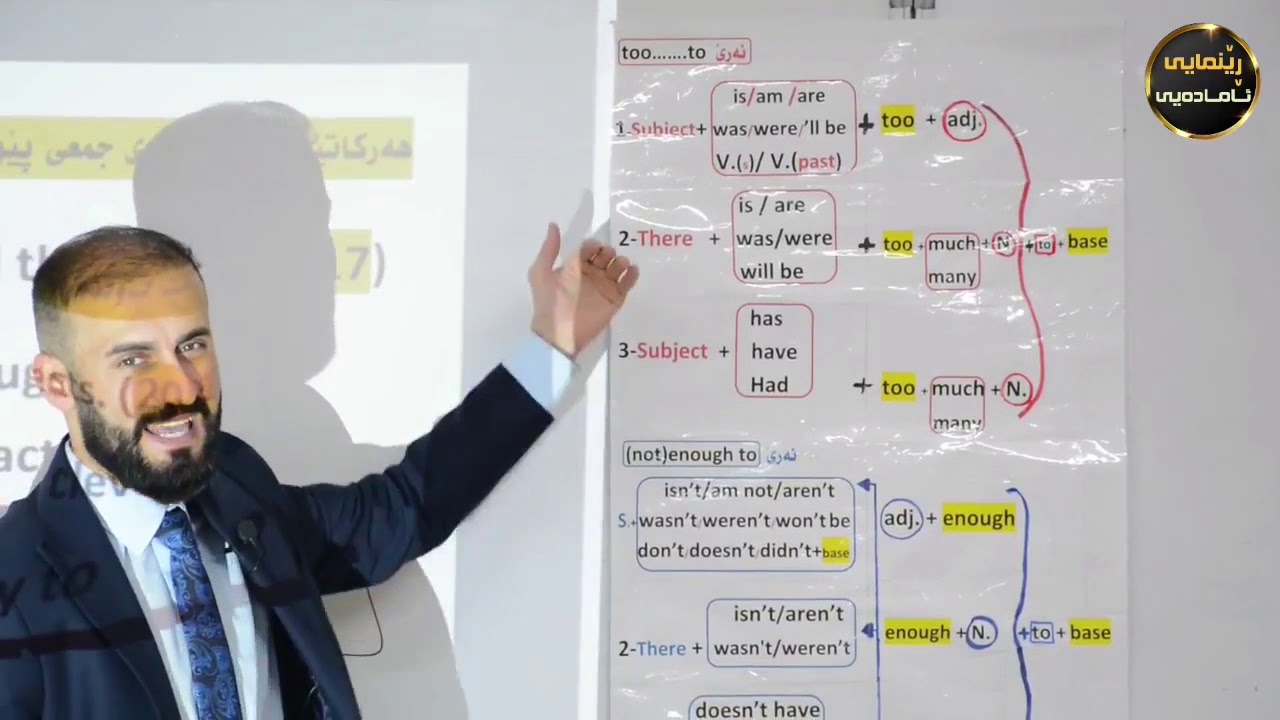 رێنمایی
ئامادەیی
too.......to نەرێ
is/am /are
1-Subject+ was/were/'ll be + too + adj.
V.(s)/ V.(past)
is / are
2-There + was/were + too + much + N. + to + base
will be many
has
3-Subject + have
Had + too + much + N.
many
(not)enough to نەرێ
isn't/am not/aren't
S.+ wasn't/weren't/won't be adj. + enough
don't/doesn't/didn't+base
isn't/aren't enough +N. +to + base
2-There + wasn't/weren't
doesn't have
هەرکاتێ
جمعی
7)
y to